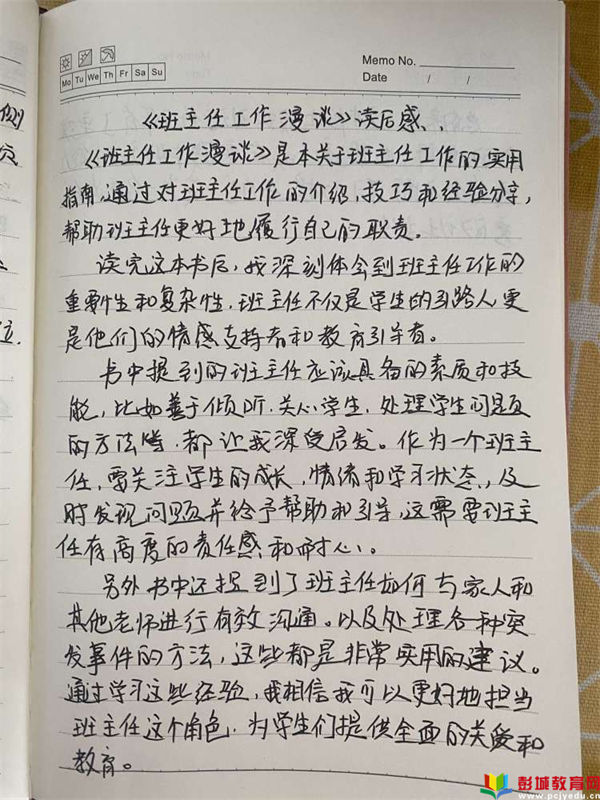 Mo Tu We Th Fr Sa Su
Memo No.
Date / /
《班主任工作漫谈》读后感
《班主任工作漫谈》是本关于班主任工作的实用
指南,通过对班主任工作的介绍,技巧和经验分享,
帮助班主任更好地履行自己的职责。
读完这本书后,我深刻体会到班主任工作的
重要性和复杂性,班主任不仅是学生的引路人更
是他们的情感支持者和教育引导者。
书中提到的班主任应该具备的素质和技
能,比如善于倾听、关心学生,处理学生问题
的方法等,都让我深受启发。作为一个班主
任,要关注学生的成长,情绪和学习状态,及
时发现问题并给予帮助和引导,这需要班主
任有高度的责任感和耐心。
另外书中还提到了班主任如何与家人和
其他老师进行有效沟通。以及处理各种突
发事件的方法,这些都是非常实用的建议。
通过学习这些经验,我相信我可以更好地担当
班主任这个角色,为学生们提供全面的关爱和
教育。
彭城教育网
www.pcjyedu.cn